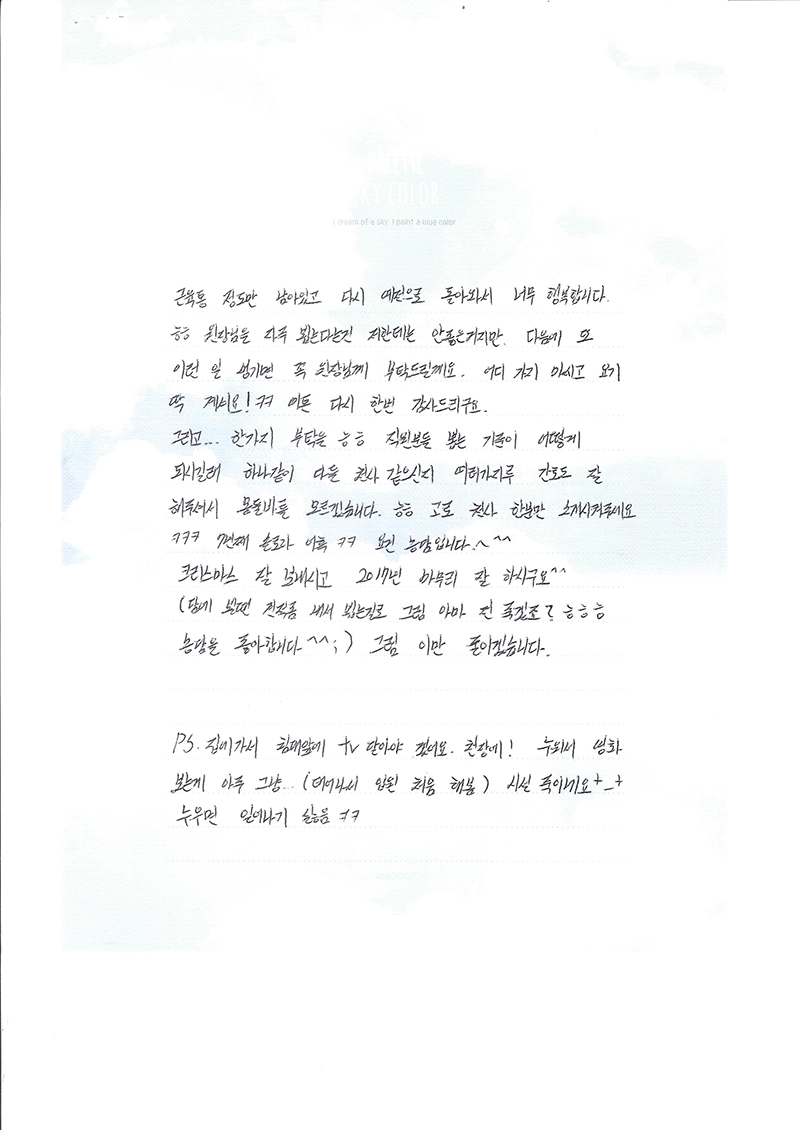 SKY COLOR
I dream of a sky. I paint a blue color.
근육통 정도만 남아있고 다시 예전으로 돌아와서 너무 행복합니다.
ㅎㅎ 원장님을 자주 뵙는다는건 저한테는 안좋은거지만. 다음에 또
이런 일 생기면 꼭 원장님께 부탁드릴께요. 어디 가지 마시고 요기
딱 계셔요! ㅋㅋ 여튼 다시 한번 감사드리구요.
그리고... 한가지 부탁을 ㅎㅎ 직원분들 뽑는 기준이 어떻게
되시길래 하나같이 다들 천사 같으신지 여러가지루 간호도 잘
해주셔서 몸둘바를 모르겠습니다. ㅎㅎ 고로 천사 한분만 소개시켜주세요
ㅋㅋㅋ 7년째 솔로라 어흑 ㅋㅋ 요건 농담입니다.~ ^^
크리스마스 잘 보내시고 2017년 마무리 잘 하시구요^^
(담에 뵐땐 전직종 내서 뵙는걸로 그럼 아마 전 죽겠죠? ㅎㅎㅎ
농담을 좋아합니다 ^^;) 그럼 이만 줄이겠습니다.
PS. 집에가서 침대앞에 tv 달아야 겠어요. 천장에! 누워서 영화
보는게 아주 그냥... (태어나서 입원 처음 해봄) 시설 죽이네요+_+
누우면 일어나기 싫음 ㅋㅋ